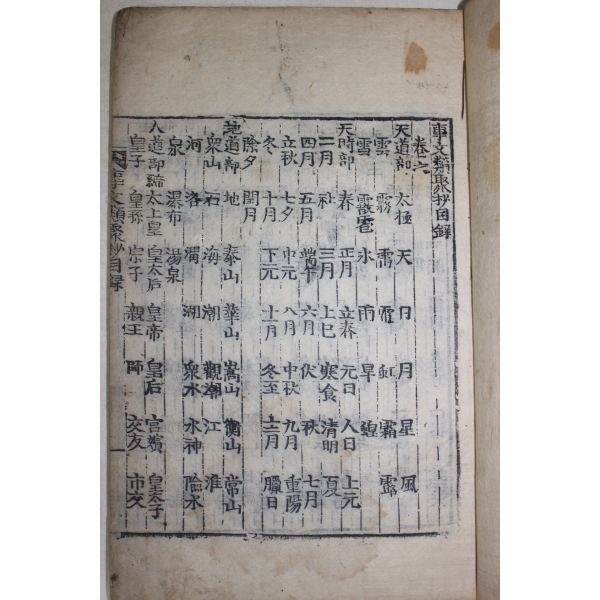 事文類聚抄目錄
卷之六
天道部 太極 天 日 月 星 風
雲 霧 雷 電 虹 霜 露
雪 霰雹 氷 雨 旱 蝗
天時部 春 正月 立春 元日 人日 上元
二月 社 三月 上巳 寒食 清明 夏
四月 五月 端午 六月 伏 秋 七月
立秋 七夕 中元 八月 中秋 九月 重陽
冬 十月 下元 十一月 冬至 十二月 臘日
除夕 閏月
地道部 地 泰山 華山 嵩山 衡山 常山
衆山 石 海 潮 觀潮 江 淮
河 洛 渭 湖 衆水 水神
泉 瀑布 湯泉
人道部 太上皇 皇太后 皇帝 皇后 宮嬪 皇太子
皇子 皇孫 宗子 親王 師 交友 市交
事文類聚抄目錄 一